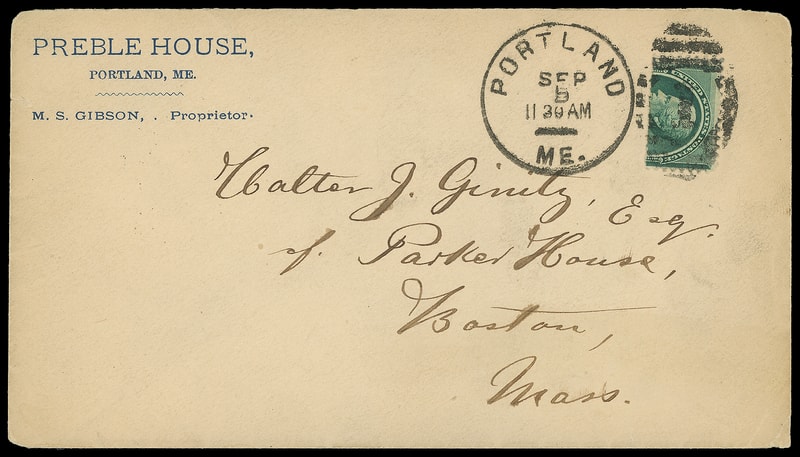 PREBLE HOUSE,
PORTLAND, ME.
M. S. GIBSON, . Proprietor.
PORTLAND
SEP
5
11 30 AM
ME.
UNITED STATES POSTAGE
Walter J. Ginity, Esq.
of Parker House,
Boston,
Mass.